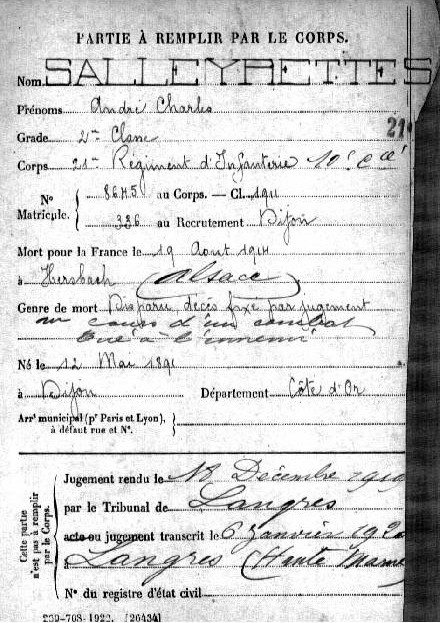 PARTIE À REMPLIR PAR LE CORPS.
Nom SALLEYRETTES
Prénoms André Charles
Grade 2me Classe
21
Corps 21me Régiment d'Infanterie 10e Cie
N° Matricule. { 8645 au Corps. — Cl. 1911
336 au Recrutement Dijon
Mort pour la France le 19 Aout 1914
à Hersbach (Alsace)
Genre de mort Disparu, décès fixé par jugement
au cours d'un combat
tué à l'ennemi
Né le 12 Mai 1891
à Dijon Département Côte d'Or
Arrt municipal (pr Paris et Lyon), à défaut rue et N°. {
Cette partie n'est pas à remplir par le Corps. {
Jugement rendu le 18 Décembre 1919
par le Tribunal de Langres
acte ou jugement transcrit le 6 Janvier 1920
à Langres (Haute Marne
N° du registre d'état civil
[26434]